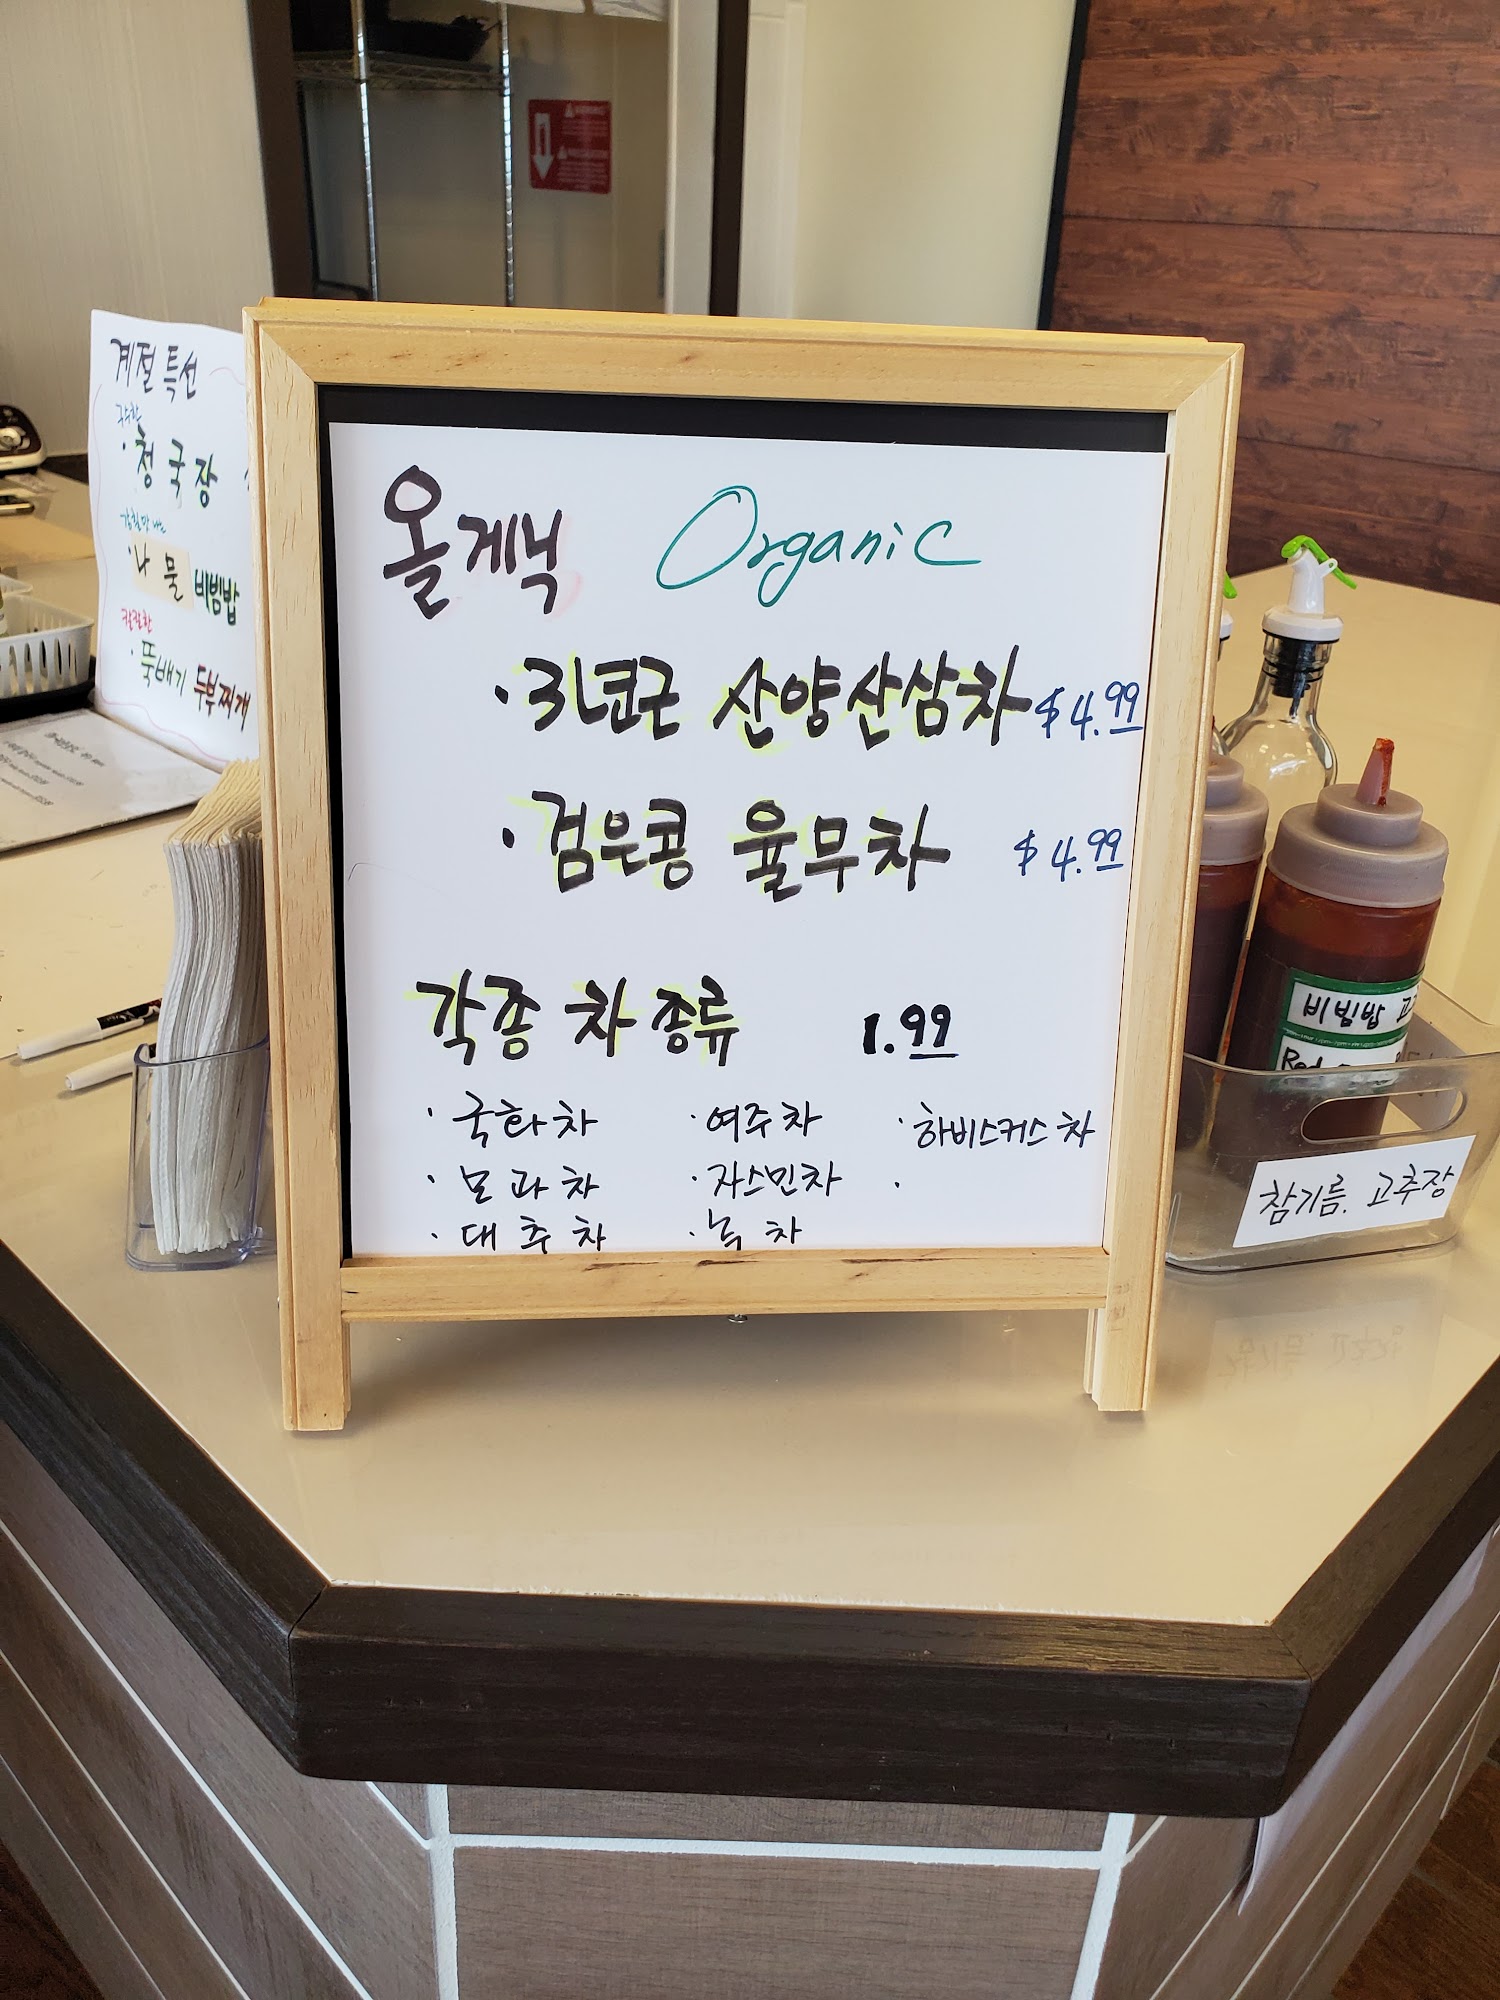 계절 특선
구수한
· 청국장
· 나물 비빔밥
칼칼한
· 뚝배기 두부찌개
올게닉 Organic
· 3년근 산양산삼차 $4.99
· 검은콩 율무차 $4.99
각종 차 종류 1.99
· 국화차 · 여주차 · 하비스커스차
· 모과차 · 자스민차 ·
· 대추차 · 녹차
비빔밥 고
Red
참기름. 고추장